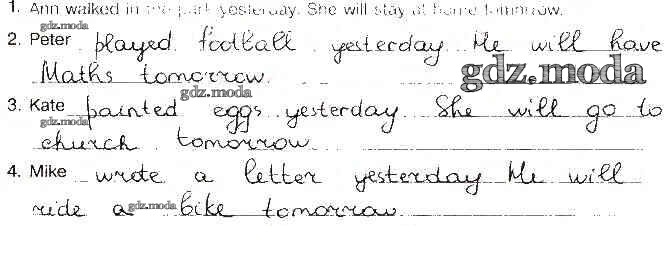 1. Ann walked in the park yesterday. She will stay at home tomorrow.
gdz.moda
2. Peter played football yesterday. He will have
Maths tomorrow.
gdz.moda
gdz.moda
3. Kate painted eggs yesterday. She will go to
gdz.moda
church tomorrow
4. Mike wrote a letter yesterday He will
ride a bike tomorrow
gdz.moda